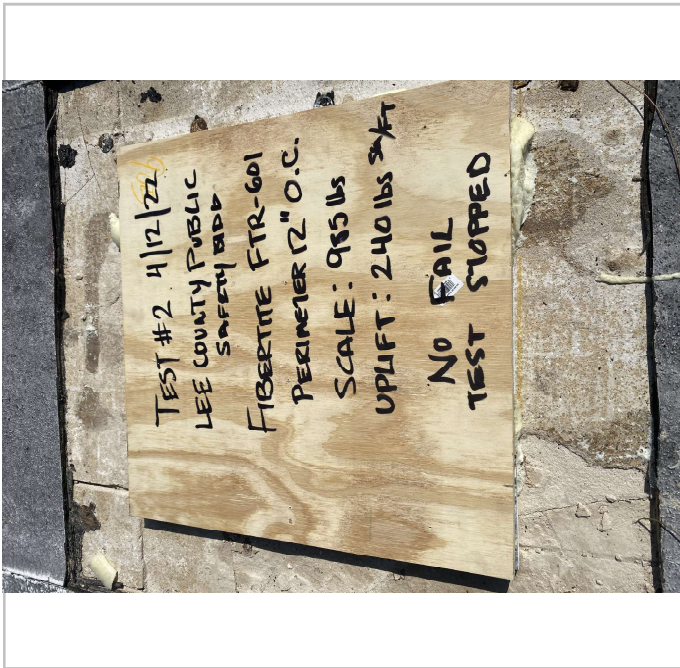 TEST #2 4/12/22
LEE COUNTY PUBLIC
SAFETY BLDG
FIBERTITE FTR-601
PERIMETER 12" O.C.
SCALE: 985 lbs
UPLIFT: 240 lbs SQ/FT
NO FAIL
TEST STOPPED